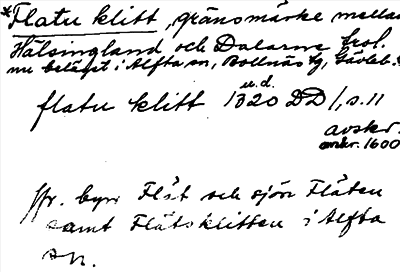 *Flatu klitt, gränsmärke mella
Hälsingland och Dalarne
nu beläget i Alfta sn, Bollnäs tg, Gävleb.
u.d.
flatu klitt 1320 DD 1, s. 11
avskr.
omkr. 1600
Jfr. byn Flät och sjön Fläten
samt Flätsklitten i Alfta
sn.